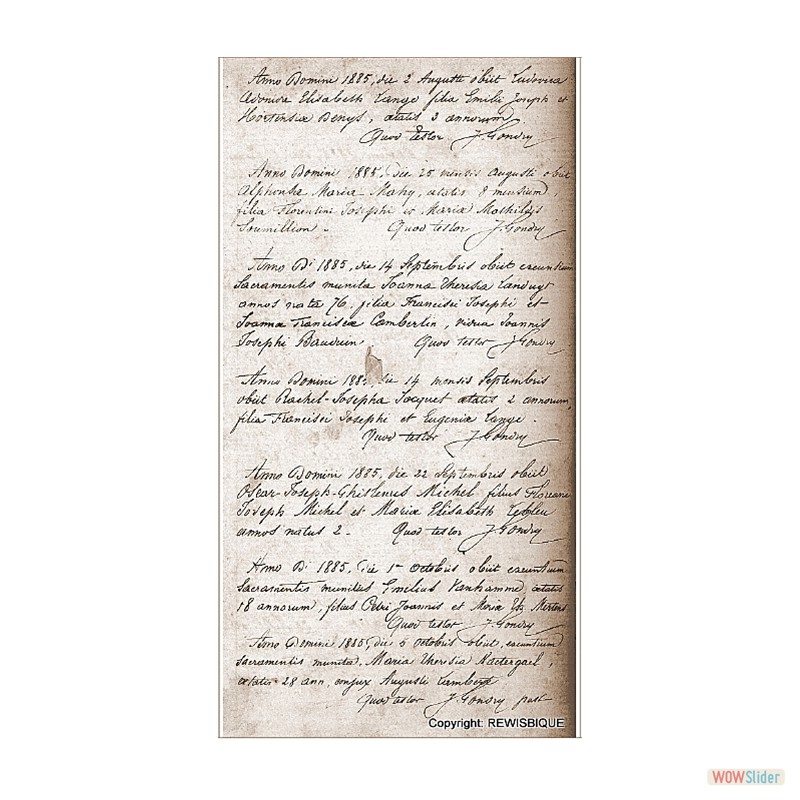 Anno Domini 1885, die 2 Augusti obiit Ludovica
Elisabeth Lange filia Emilii Joseph et
Hortensiæ Denys, ætatis 3 annorum
Quod testor J. Gondry
Anno Domini 1885, die 25 mensis Augusti obiit
Alphonsa Maria Mahy, ætatis 8 mensium,
filia Florentini Josephi et Mariæ Mathildis
Soremillion. Quod testor J. Gondry
Anno Di 1885, die 14 Septembris obiit exeuntium
Sacramentis munita Joanna Theresia
annos nata 76, filia Francisci Josephi et
Joannæ Franciscæ Camberlin, vidua Joannis
Josephi Bauduin Quod testor J. Gondry
Anno Domini 188 die 14 mensis Septembris
obiit Rachel-Josepha Jacquet ætatis 2 annorum,
filia Francisci Josephi et Eugeniæ Lange.
Quod testor J. Gondry
Anno Domini 1885, die 22 Septembris obiit
Oscar-Joseph-Ghislenus Michel, filius
Joseph Michel et Mariæ Elisabeth
annos natus 2. Quod testor J. Gondry
Anno Di 1885, die 1a octobris obiit exeuntium
Sacramentis munitus Emilius Vanhamme, ætatis
18 annorum, filius Petri Joannis et Mertens
Quod testor J. Gondry
Anno Domini 1885, die 5 octobris obiit, exeuntium
sacramentis munita, Maria Theresia
ætatis 28 ann, conjux Augusti
Quod testor J. Gondry past
Copyright: REWISBIQUE
WOWSlider